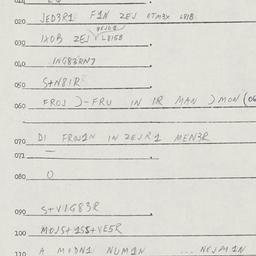 020 JED3R1 F1N ZEJ
030 IXOB ZEJ L815B
040 ING83RN7
050 S+N8IR
060 FROJ )-FRU IN IR MAN )MON (06
070 DI FROJ1N IN ZEJR1 MEN3R
071 —
080 O
090 S+VIG83R
100 MOJS+1SS+VE5R
110 A MIDN1 NUM1N ... NEJM1N